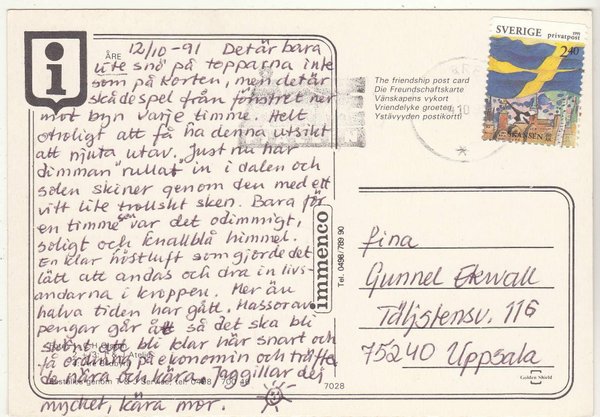 i
ÅRE
12/10-91 Det är bara
lite snö på topparna inte
som på korten, men det är
skådespel från fönstret ner
mot byn varje timme. Helt
otroligt att få ha denna utsikt
att njuta utav. Just nu har
dimman "rullat" in i dalen och
solen skiner genom den med ett
vitt lite trollskt sken. Bara för
en timme sen var det odimmigt,
soligt och knallblå himmel.
En klar höstluft som gjorde det
lätt att andas och dra in livs-
andarna i kroppen. Mer än
halva tiden har gått. Massor av
pengar går åt så det ska bli
skönt att bli klar här snart och
få ordning på ekonomin och träffa
de nära och kära. Jag gillar dej
mycket, kära mor.
7028
immenco
Tel. 0498/789 90
The friendship post card
Die Freundschaftskarte
Vänskapens vykort
Vriendelyke groeten
Ystävyyden postikortti
SVERIGE
1991
privatpost
2.40
SKANSEN
fina
Gunnel Ekwall
Täljstensv. 116
75240 Uppsala
Golden Shield